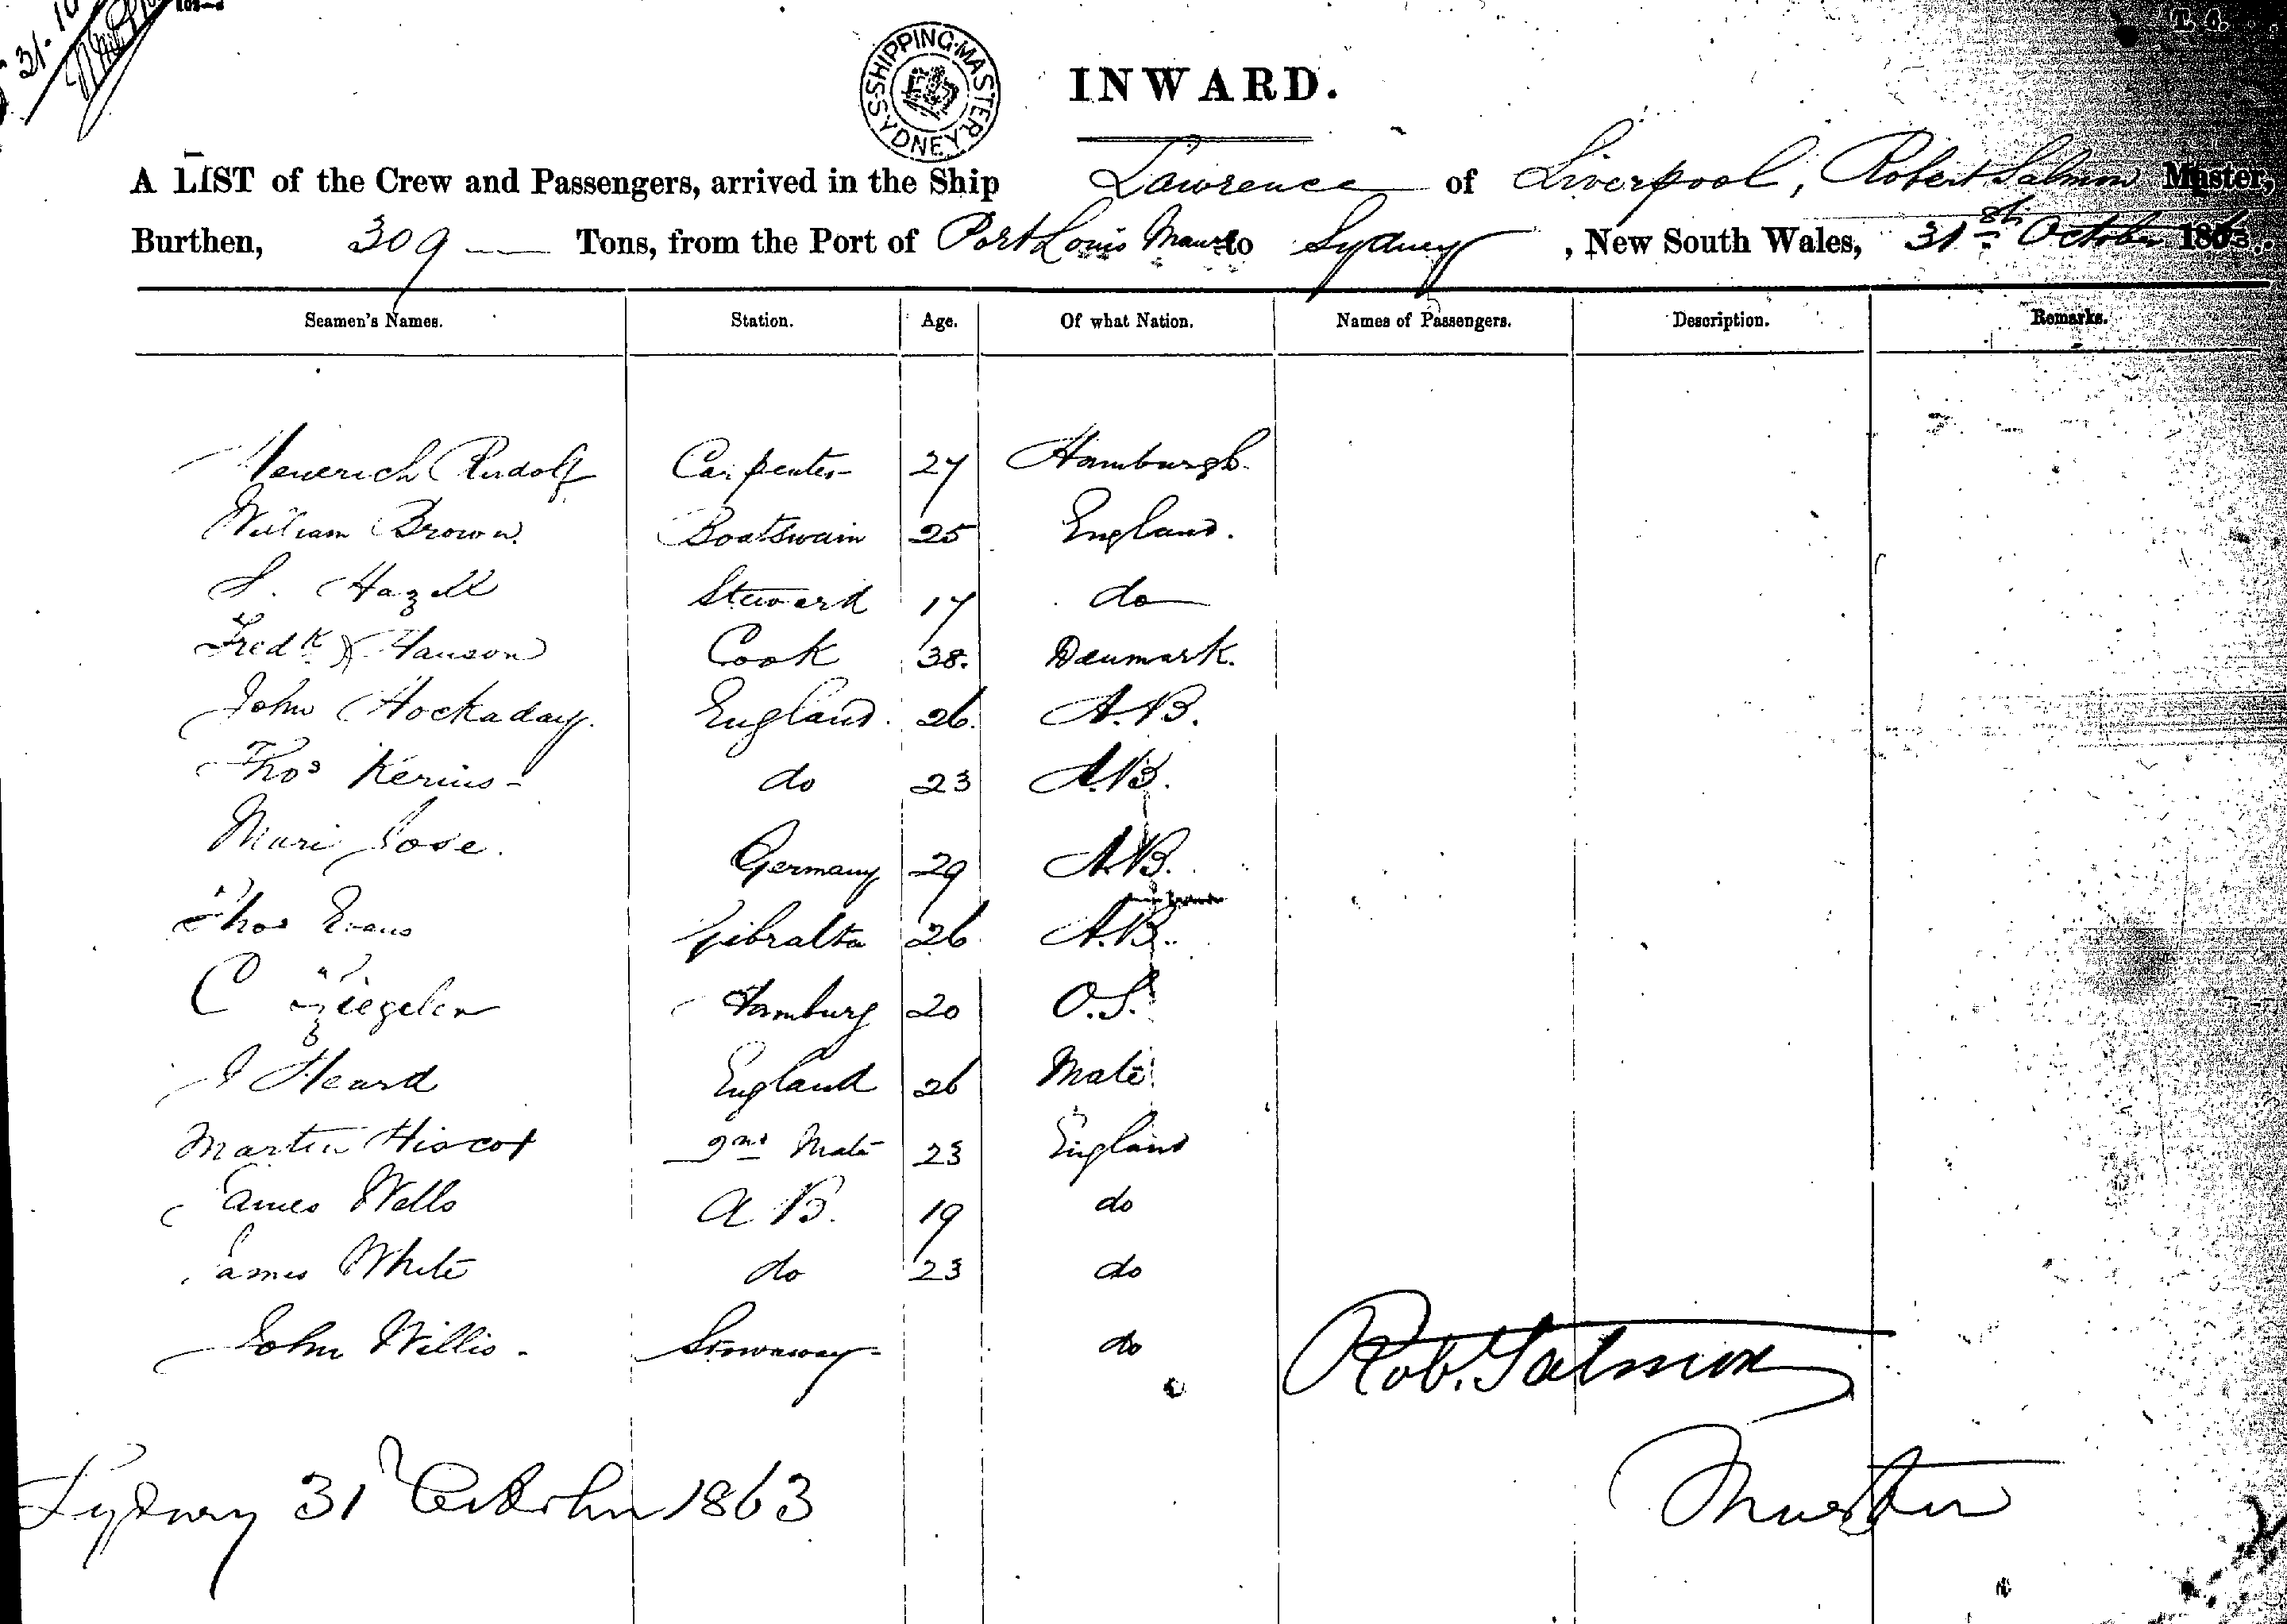 31-10
SHIPPING MASTER SYDNEY
INWARD.
A LIST of the Crew and Passengers, arrived in the Ship Lawrence of Liverpool, Robert Salmon Master,
Burthen, 309 Tons, from the Port of Port Louis to Sydney, New South Wales, 31st October 1863
Seamen's Names. Station. Age. Of what Nation. Names of Passengers. Description. Remarks.
Rudolf Carpenter 27 Hamburgh.
William Brown. Boatswain 25 England.
S. Hazell Steward 17 do
Fredk Hanson Cook 38. Denmark.
John Hockaday. England. 26. A.B.
Thos Kerins - do 23 A.B.
Mari Jose. Germany 29 A.B.
Thos Evans Gibralta 26 A.B.
C Ziegeler Hamburg 20 O.S.
J Heard England 26 Mate
Martin Hiscox 2nd Mate 23 England
James Wells A B. 19 do
James White do 23 do
John Willis - Stowaway - do
Rob. Salmon
Master
Sydney 31 October 1863